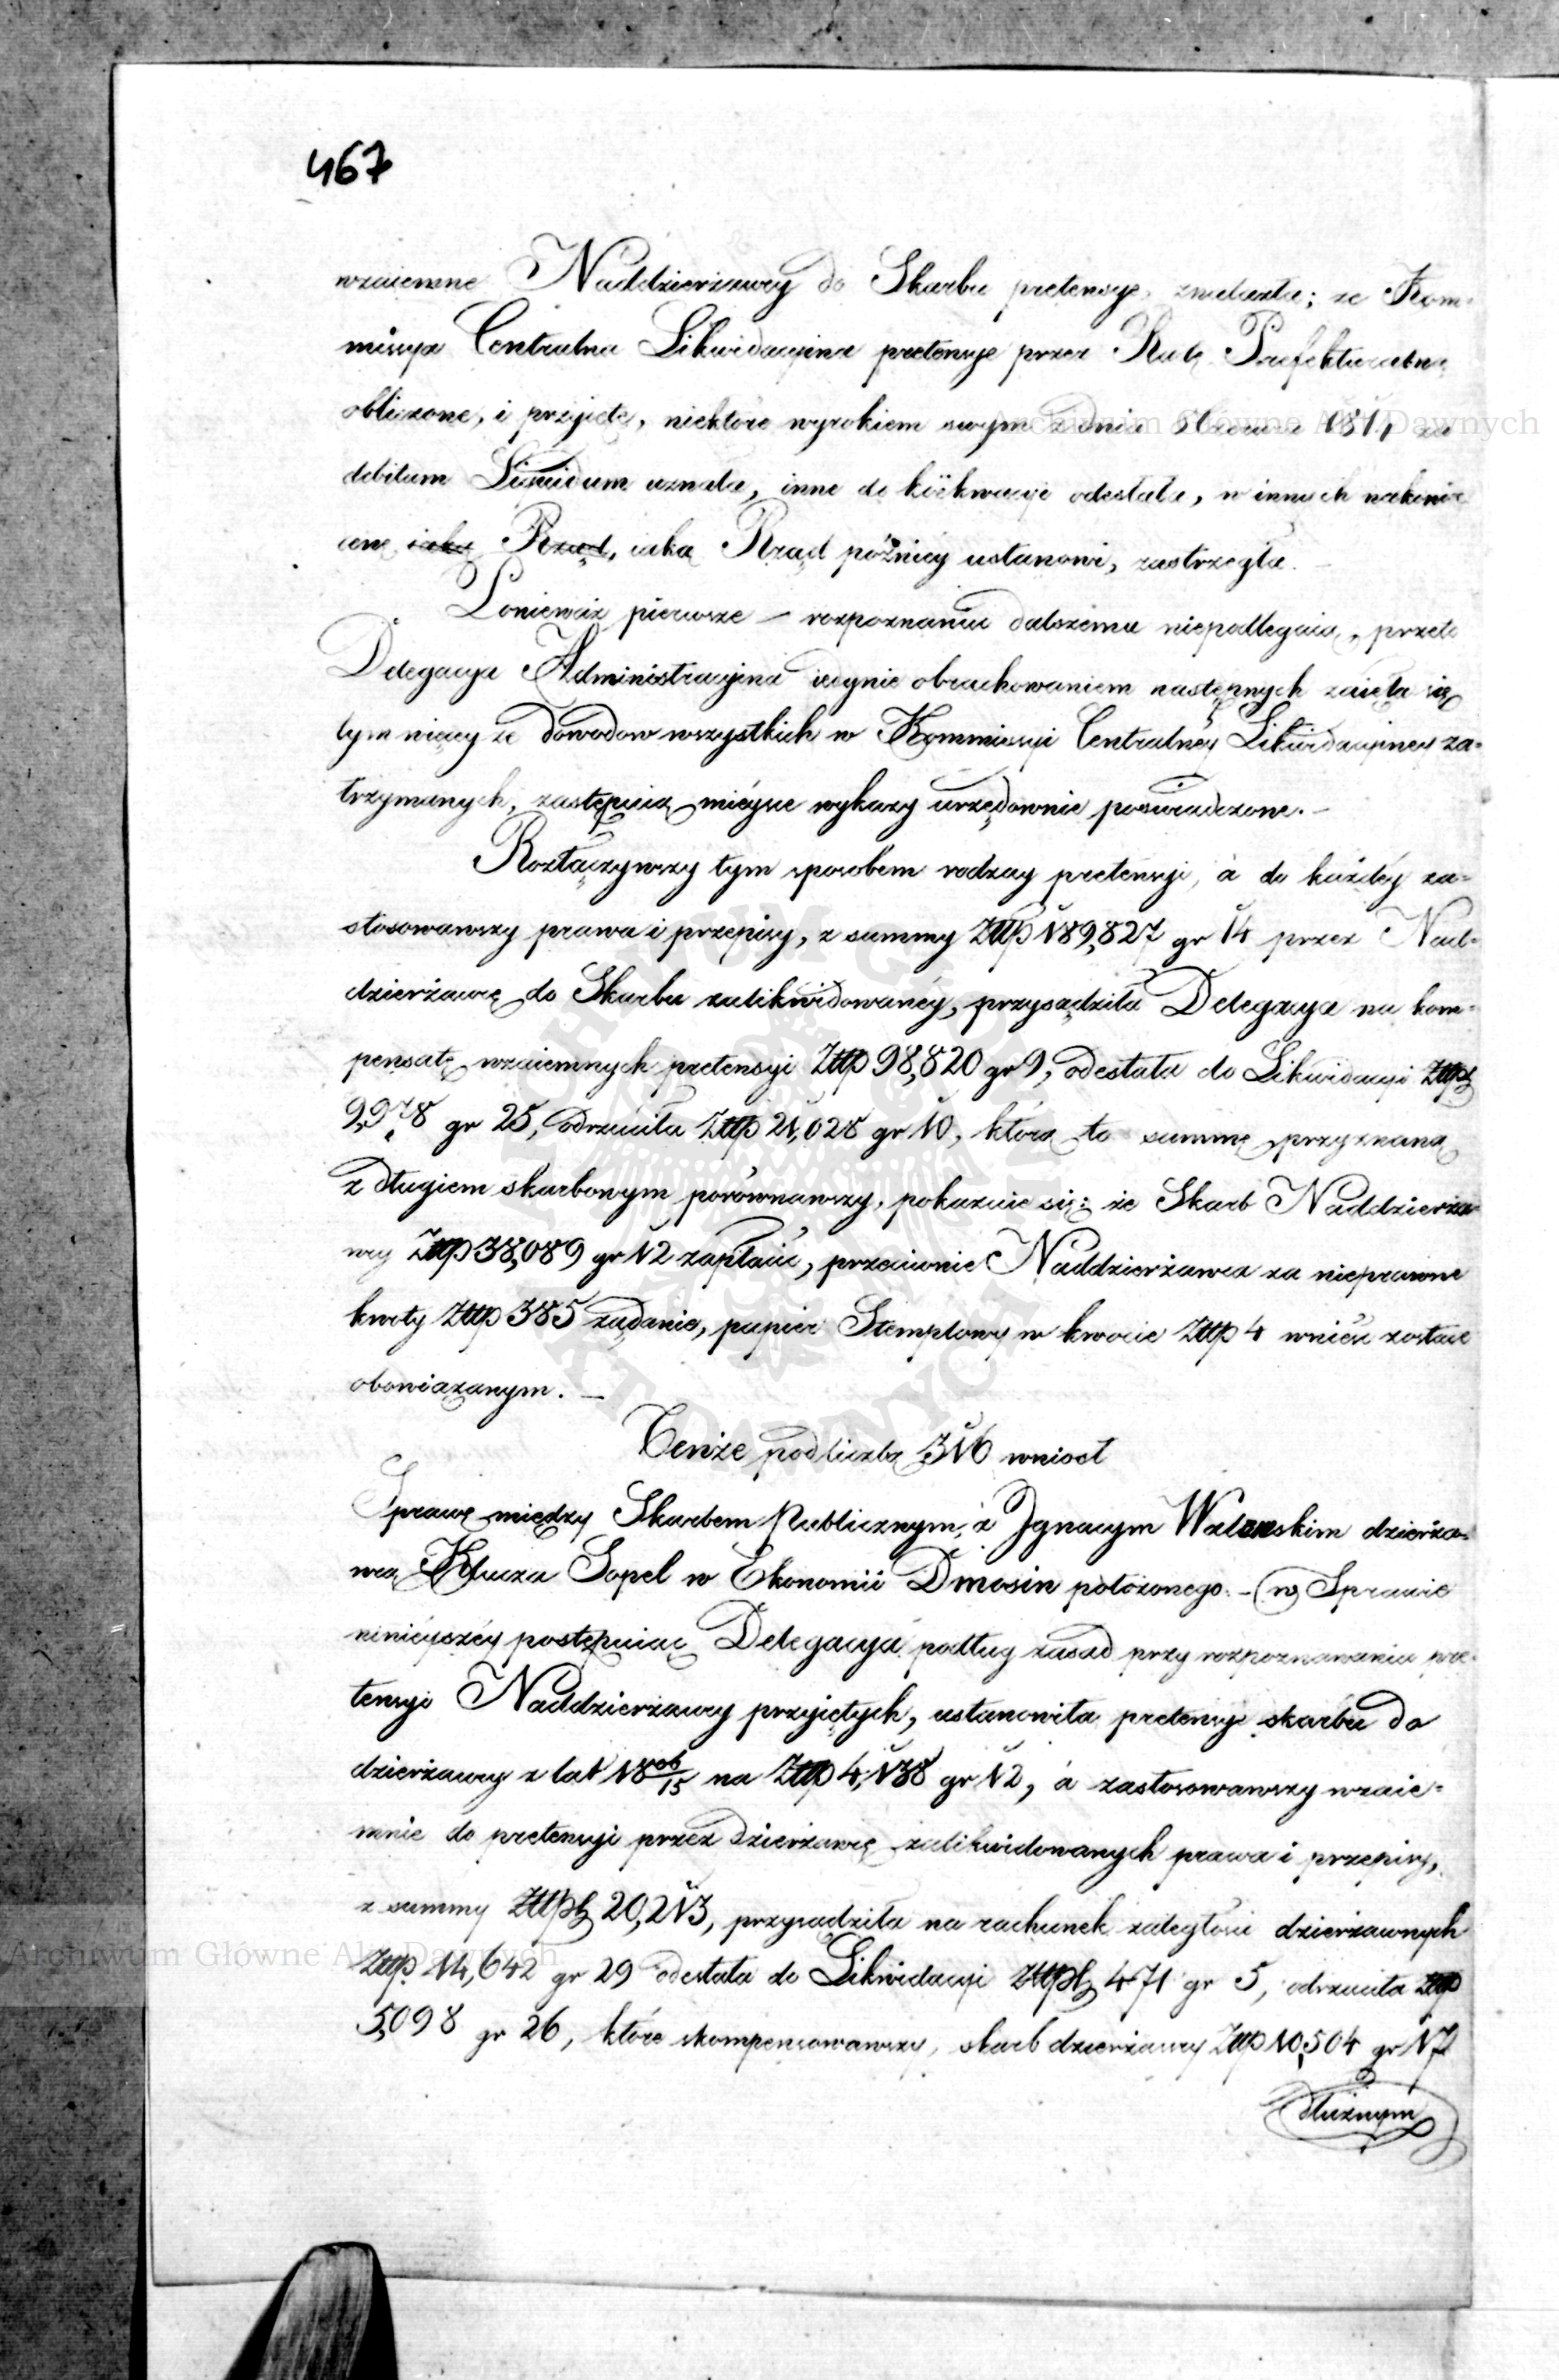 467
wzaiemne Naddzierżawcy do Skarbu pretensye, znalazła; że Kom-
missya Centralna Likwidacyina pretensye przez Radę Prefekturalną
obliczone, i przyięte, niektóre wyrokiem swym z dnia Czerwca 1814 za
debitum Liquidum uznała, inne do odesłała, w innych nakoniec
cenę iaką Rząd, iaką Rząd późniey ustanowi, zastrzegła.
Ponieważ pierwsze – rozpoznaniu dalszemu niepodlegaią, przeto
Delegacya Administracyina iedynie obrachowaniem następnych zaięła się
tym więcey że dowodow wszystkich w Kommissyi Centralnéy Likwidacyiney za-
trzymanych, zastępuią miéysce wykazy urzędownie poswiadczone. –
Rozłączywszy tym sposobem rodzay pretensyi, à do każdéy za-
stosowawszy prawa i przepisy, z summy Złłp 189,827 gr 14 przez Nad-
dzierżawcę do Skarbu zalikwidowanéy, przysądziła Delegacya na kom-
pensatę wzaiemnych pretensyi Złłp 98,820 gr 9, odesłała do Likwidacyi Złłp
9,978 gr 25, odrzuciła Złłp 21,028 gr 10, którą to summę przyznaną
z długiem skarbowym porównawszy, pokazuie się: że Skarb Naddzierża-
wcy Złłp 38,089 gr 12 zapłacić, przeciwnie Naddzierżawca za nieprawne
kwoty Złłp 385 żądanie, papier Stemplowy w kwocie Złłp 4 wnieść zostaie
obowiązanym. –
Tenże pod liczbą 316 wniosł
Sprawę między Skarbem Publicznym, z Jgnacym dzierża-
wcą Klucza Sopel w Ekonomii Dmosin położonego. – w Sprawie
ninieyszéy postępuiąc Delegacya podług zasad przy rozpoznawaniu pre-
tensyi Naddzierżawcy przyiętych, ustanowiła pretensye skarbu do
dzierżawcy z lat 18 06/15 na Złłp 4,138 gr 12, à zastosowawszy wzaie-
mnie do pretensyi przez dzierżawcę zalikwidowanych prawa i przepisy,
z summy Złłp 20,213, przysądziła na rachunek zaległości dzierżawnych
Złłp 14,642 gr 29 odesłała do Likwidacyi Złłp 471 gr 5, odrzuciła Złłp
5,098 gr 26, które skompensowawszy, skarb dzierżawcy Złłp 10,504 gr 17
dłużnym
Archiwum Główne Akt Dawnych
Archiwum Główne Akt Dawnych
ARCHIWUM GŁÓWNE AKT DAWNYCH